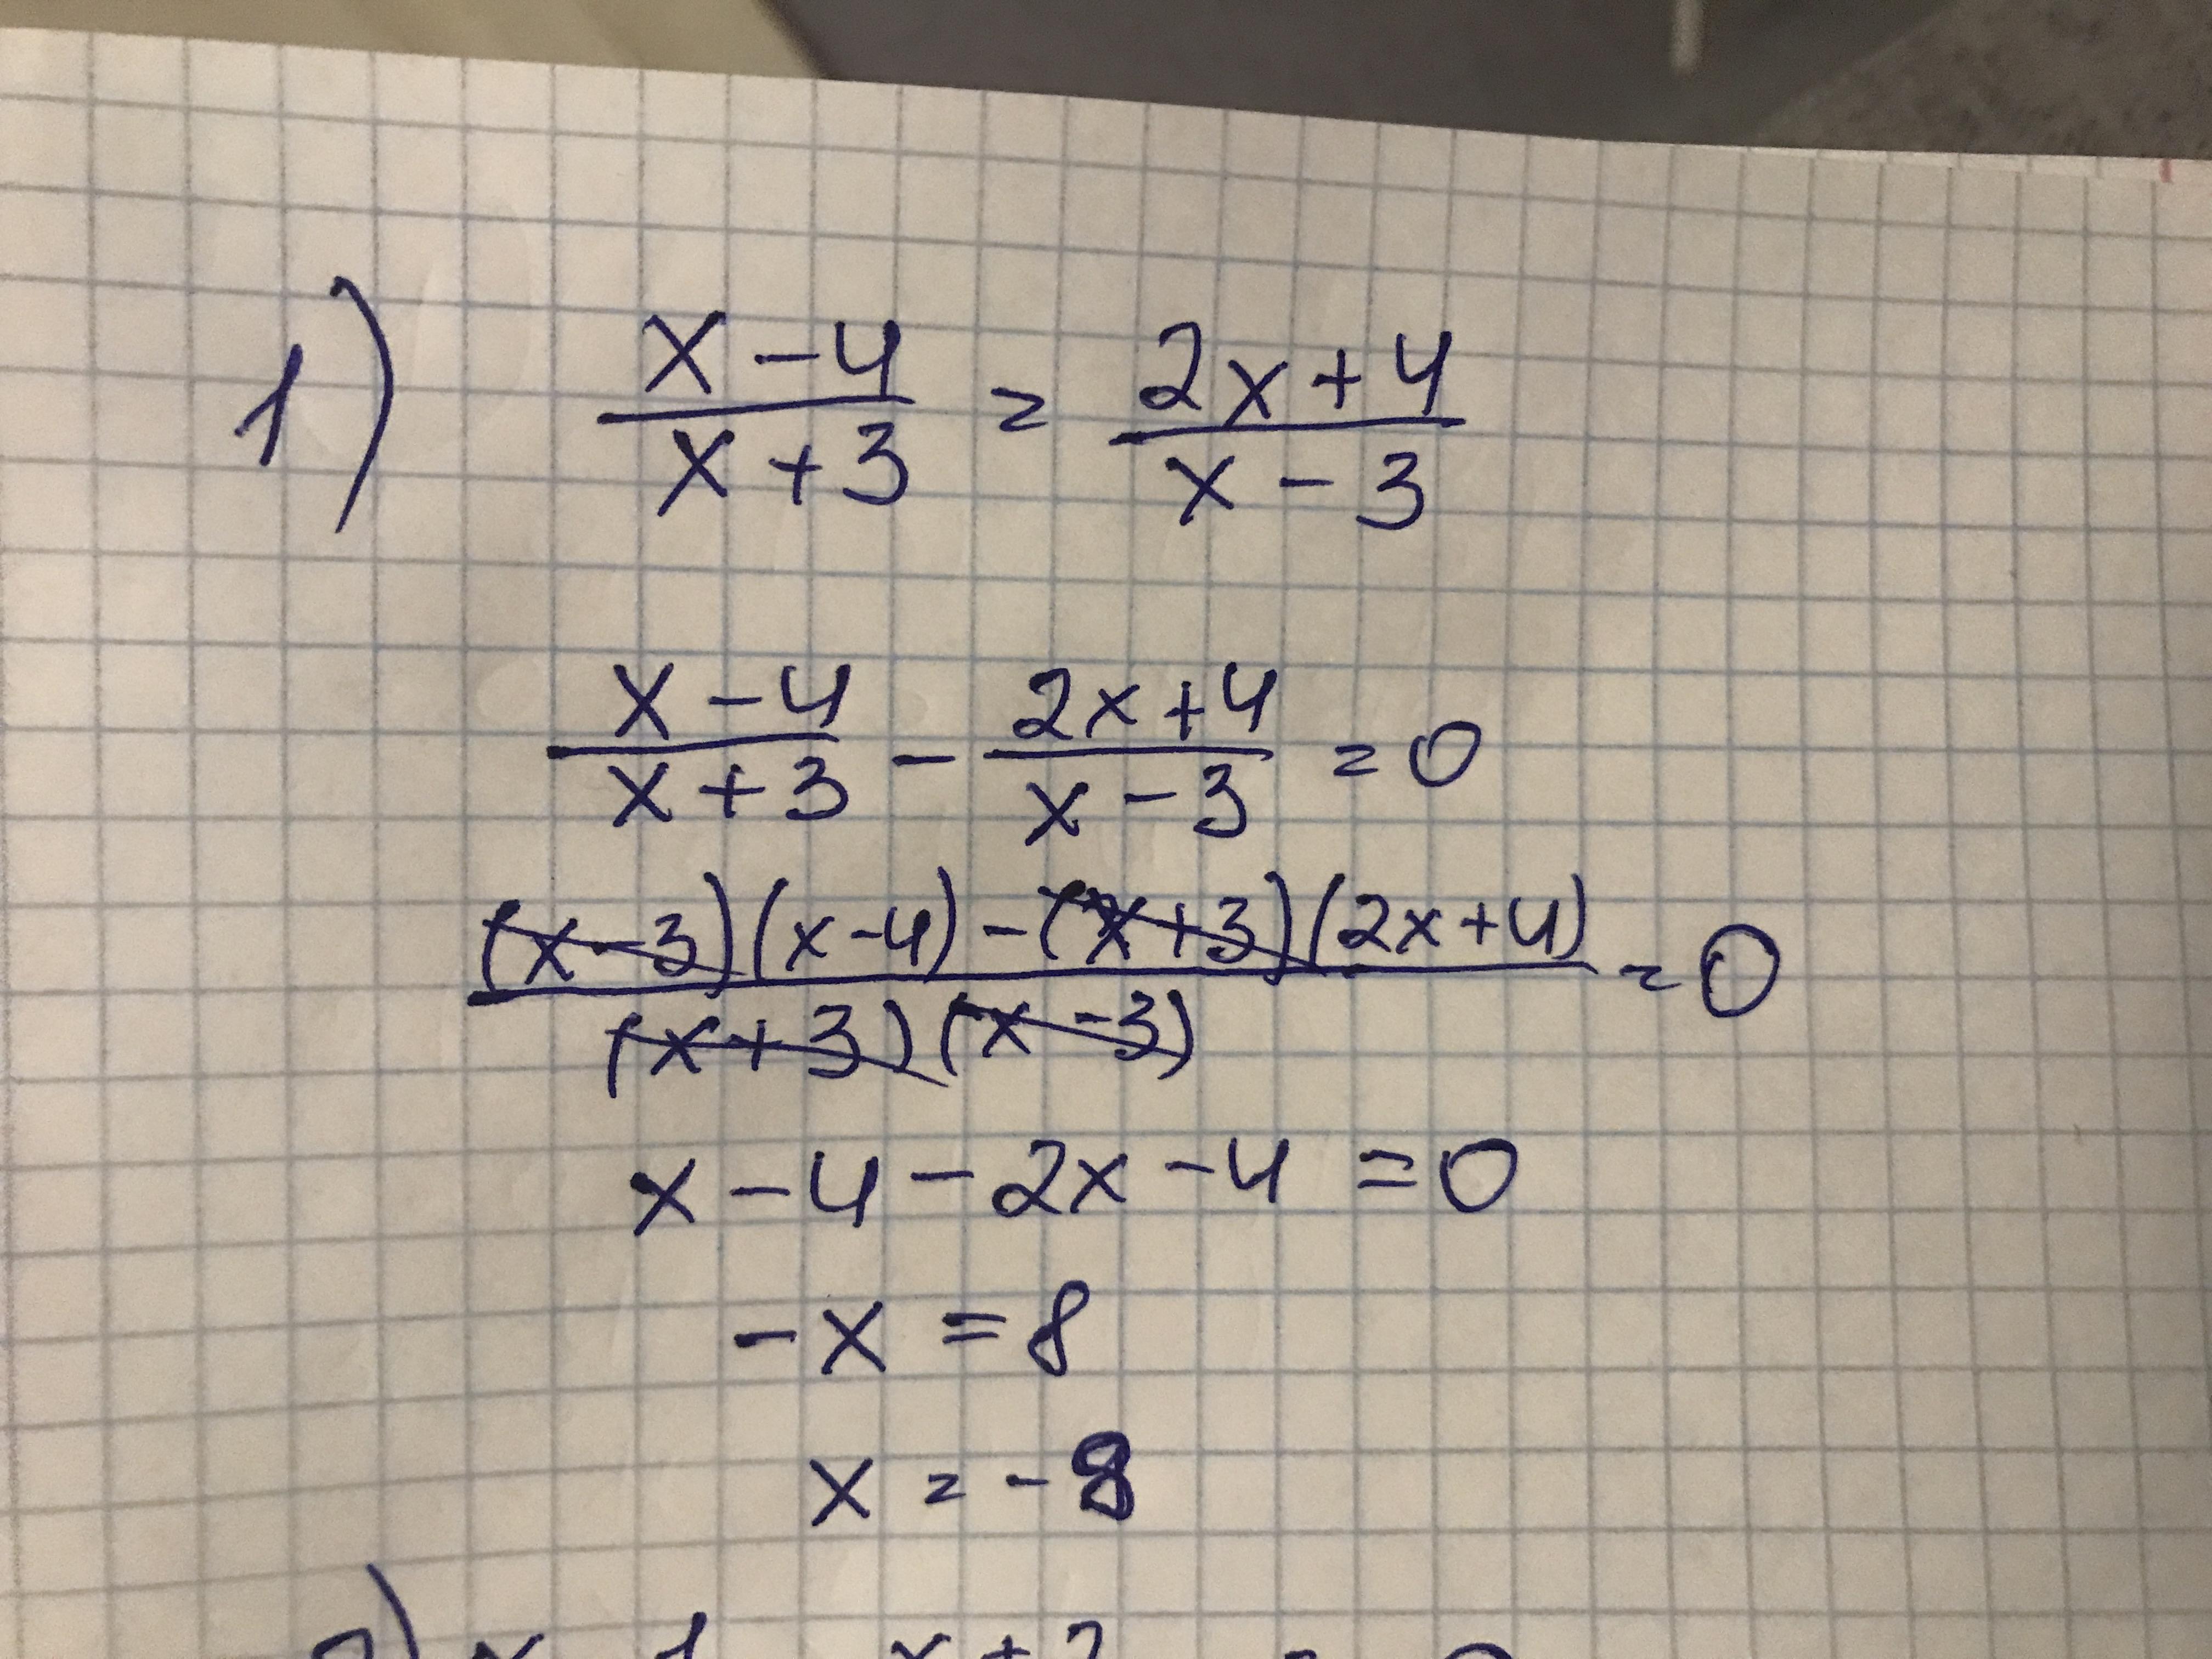 1) (x-4)/(x+3) = (2x+4)/(x-3)
(x-4)/(x+3) - (2x+4)/(x-3) = 0
((x-3)(x-4) - (x+3)(2x+4))/((x+3)(x-3)) = 0
x - 4 - 2x - 4 = 0
-x = 8
x = -8